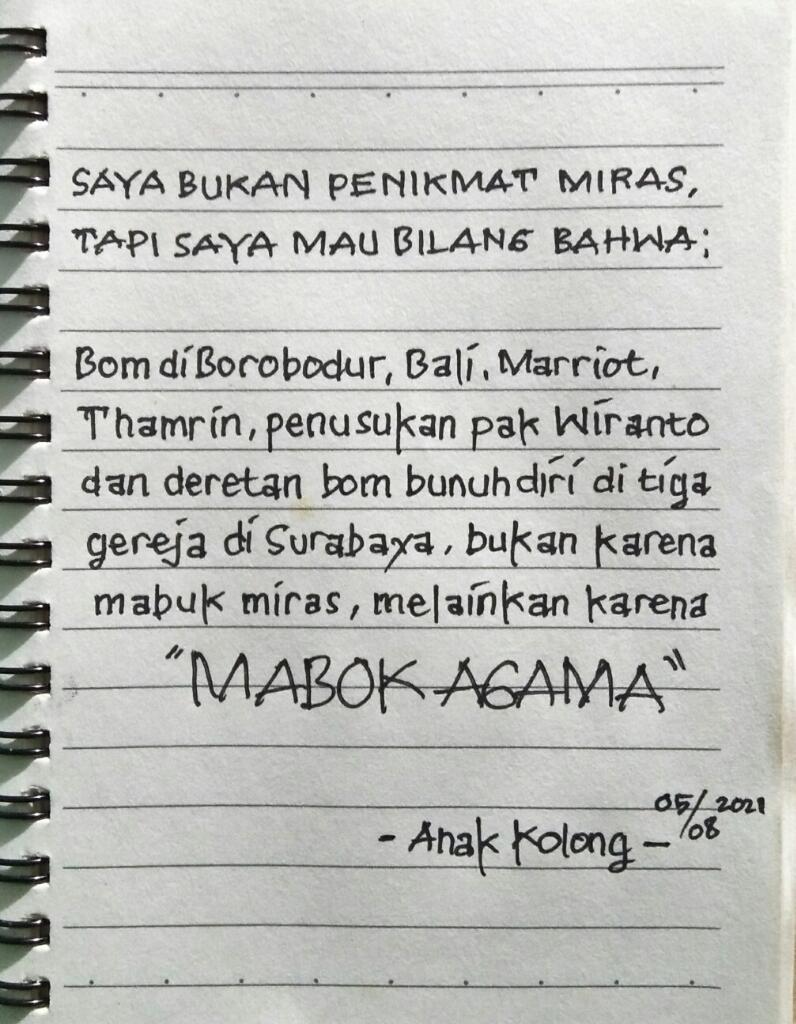 SAYA BUKAN PENIKMAT MIRAS,
TAPI SAYA MAU BILANG BAHWA;
Bom di Borobodur, Bali, Marriot,
Thamrin, penusukan pak Wiranto
dan deretan bom bunuh diri di tiga
gereja di Surabaya, bukan karena
mabuk miras, melainkan karena
"MABOK AGAMA"
- Anak Kolong - 05/08 2021